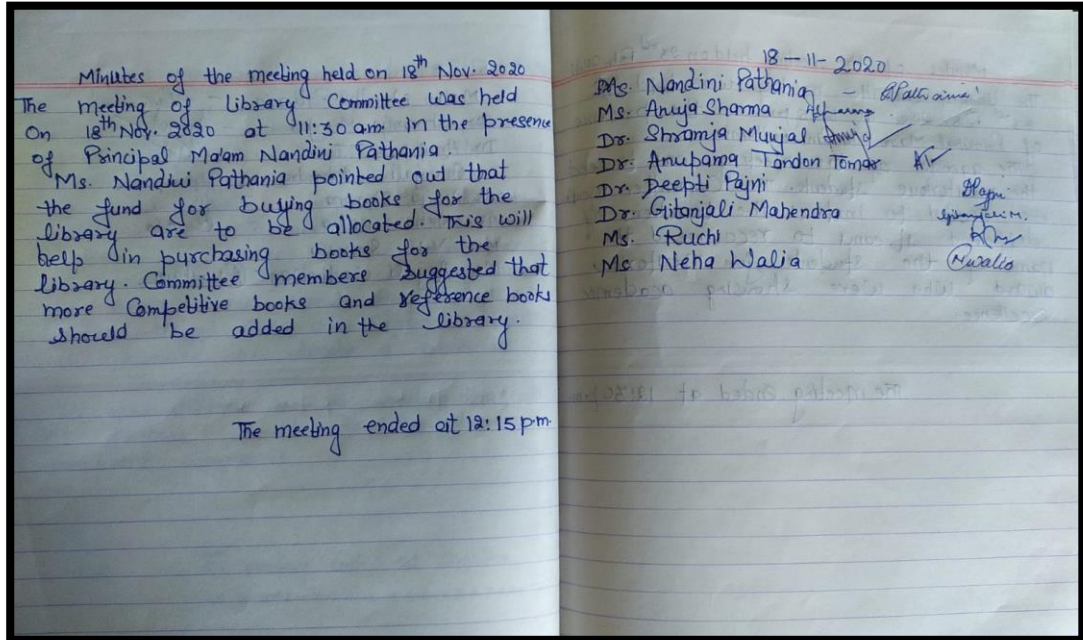 Minutes of the meeting held on 18th Nov. 2020
The meeting of Library Committee was held
on 18th Nov. 2020 at 11:30 am in the presence
of Principal Ma'am Nandini Pathania.
Ms. Nandini Pathania pointed out that
the fund for buying books for the
library are to be allocated. This will
help in purchasing books for the
library. Committee members suggested that
more Competitive books and reference books
should be added in the library.
The meeting ended at 12:15 pm.
18-11-2020
Ms. Nandini Pathania -
Ms. Anuja Sharma
Dr. Shramja Munjal
Dr. Anupama Tandon Tomar
Dr. Deepti Pajni
Dr. Gitanjali Mahendra Gitanjali M.
Ms. Ruchi
Ms. Neha Walia Nwalia